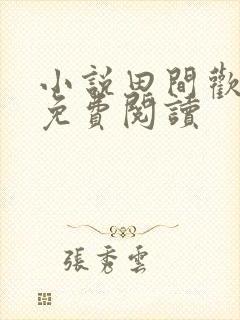 小說田間歡
免費閱讀
張秀雲